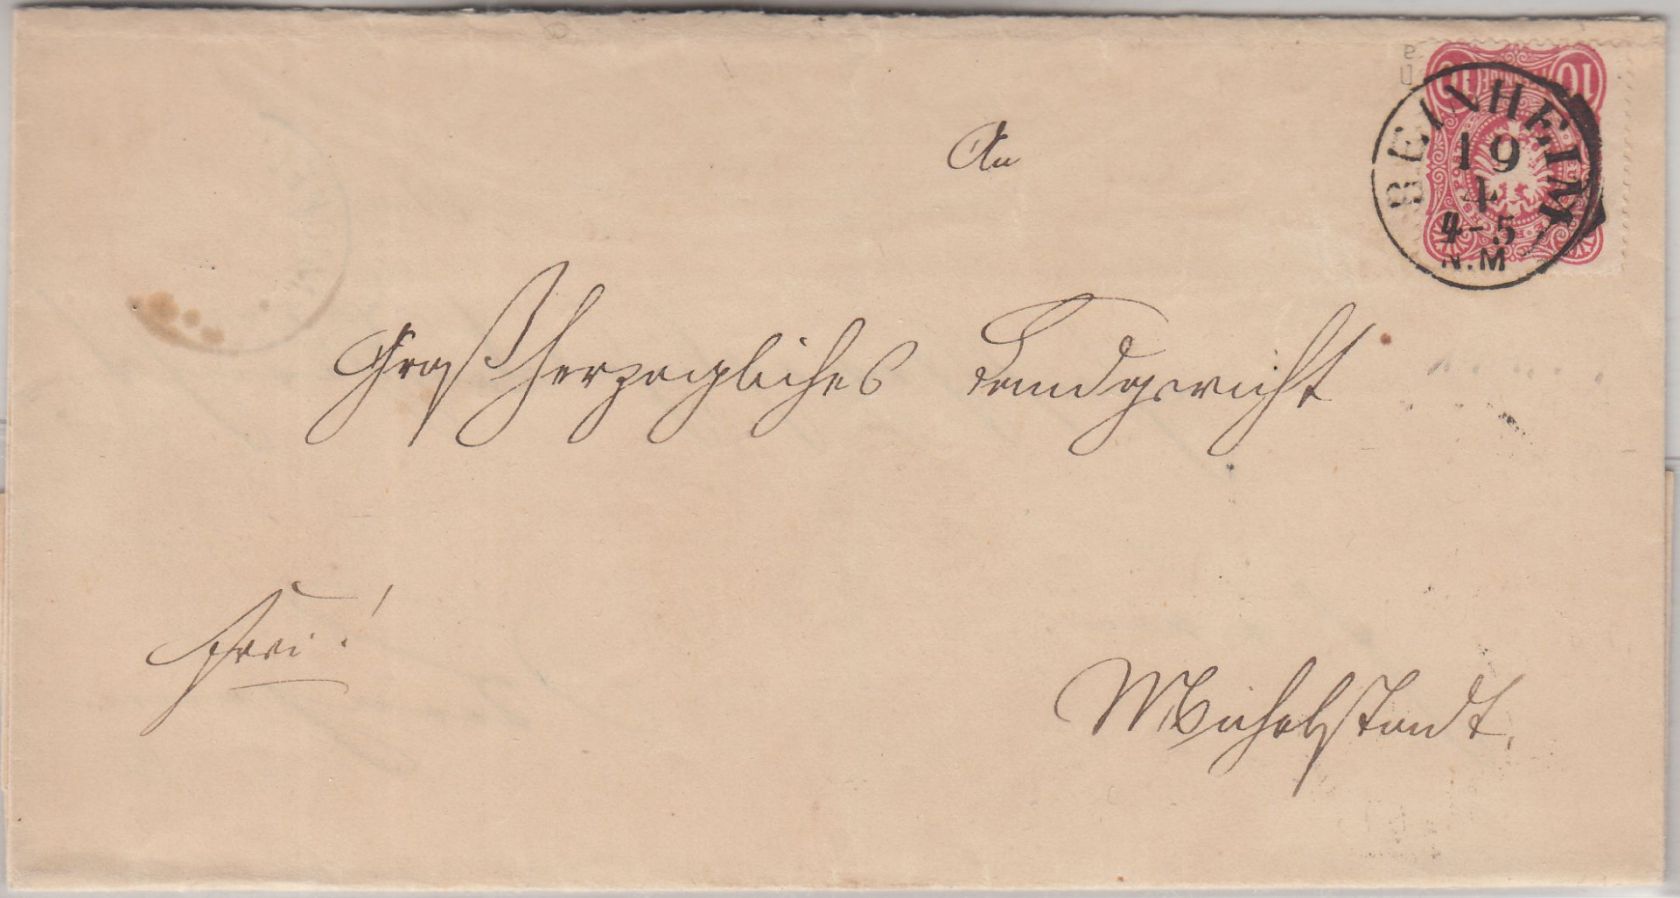 An
BEINHEIM
19
4
4-5
N.M
10
10
Großherzogliches Landgericht
frei!
Michelstadt.